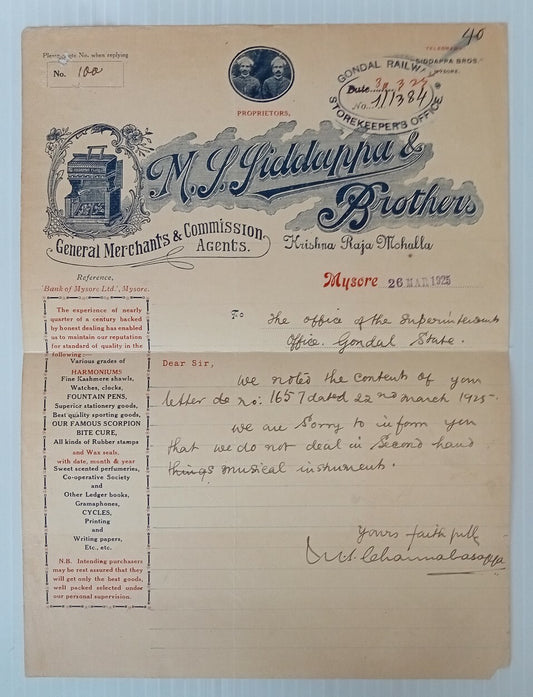 Please note No. when replying
No. 100
40
TELEGRAMS
SIDDAPPA BROS.
MYSORE.
GONDAL RAILWAY
Date 30.3.25
No. 1/1384
STOREKEEPER'S OFFICE
PROPRIETORS,
M. S. Siddappa &
Brothers
General Merchants & Commission,
Agents.
Krishna Raja Mohalla
Reference,
'Bank of Mysore Ltd.', Mysore.
Mysore 26 MAR 1925
To The office of the Superintendents
Office. Gondal State.
Dear Sir,
we noted the contents of your
letter de no: 1657 dated 22nd march 1925-
we are sorry to inform you
that we do not deal in Second hand
things musical instruments.
Yours faithfully
M.S. Channabasappa
The experience of nearly
quarter of a century backed
by honest dealing has enabled
us to maintain our reputation
for standard of quality in the
following:—
Various grades of
HARMONIUMS
Fine Kashmere shawls,
Watches, clocks,
FOUNTAIN PENS,
Superior stationery goods,
Best quality sporting goods,
OUR FAMOUS SCORPION
BITE CURE,
All kinds of Rubber stamps
and Wax seals.
with date, month & year
Sweet scented perfumeries,
Co-operative Society
and
Other Ledger books,
Gramaphones,
CYCLES,
Printing
and
Writing papers,
Etc., etc.
N.B. Intending purchasers
may be rest assured that they
will get only the best goods,
well packed selected under
our personal supervision.